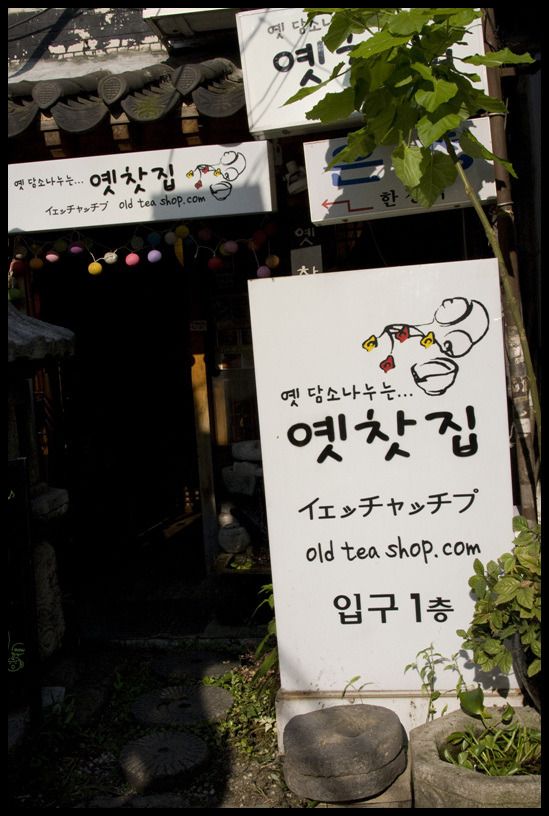 옛 담소나누는...
옛찻집
イェッチャッチプ
old tea shop.com
옛 담소
옛
한
옛
찻
옛 담소나누는...
옛찻집
イェッチャッチプ
old tea shop.com
입구 1층